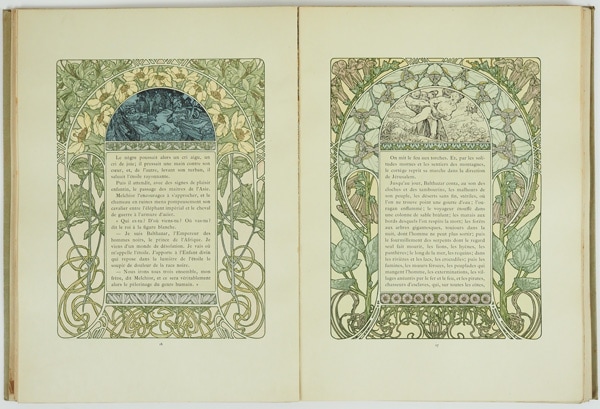 Le nègre poussait alors un cri aigu, un
cri de joie; il pressait une main contre son
cœur, et, de l'autre, levant son turban, il
saluait l'étoile rayonnante.
Puis il attendit, avec des signes de plaisir
enfantin, le passage des maîtres de l'Asie.
Melchior l'encouragea à s'approcher, et le
chameau en ruines monta pompeusement son
cavalier entre l'éléphant impérial et le cheval
de guerre à l'armure d'acier.
« Qui es-tu? D'où viens-tu? Où vas-tu?
dit le roi à la figure blanche.
— Je suis Balthazar, l'Empereur des
hommes noirs, le prince de l'Afrique. Je
viens d'un monde de désolation. Je vais où
m'appelle l'étoile. J'apporte à l'Enfant divin
qui repose dans la lumière de l'étoile le
soupir de douleur de la race noire.
— Nous irons tous trois ensemble, mon
frère, dit Melchior, et ce sera véritablement
alors le pèlerinage du genre humain. »
On mit le feu aux torches. Et, par les soli-
tudes mornes et les sentiers des montagnes,
le cortège reprit sa marche dans la direction
de Jérusalem.
Jusqu'au jour, Balthazar conta, au son des
cloches et des tambourins, les malheurs de
son peuple, les déserts sans fin, stériles, où
l'on ne trouve point une goutte d'eau; l'ou-
ragan enflammé; le voyageur étouffé dans
une colonne de sable brûlant; les marais aux
bords desquels l'on respire la mort; les forêts
aux arbres gigantesques, toujours dans la
nuit, dont l'homme ne peut plus sortir; puis
le fourmillement des serpents dont le regard
seul fait mourir, les lions, les hyènes, les
panthères; le long de la mer, les requins; dans
les rivières et les lacs, les crocodiles; puis les
famines, les mœurs féroces, les peuplades qui
mangent l'homme, les exterminations, les vil-
lages anéantis par le fer et le feu, et les pirates,
chasseurs d'esclaves, qui, sur toutes les côtes,